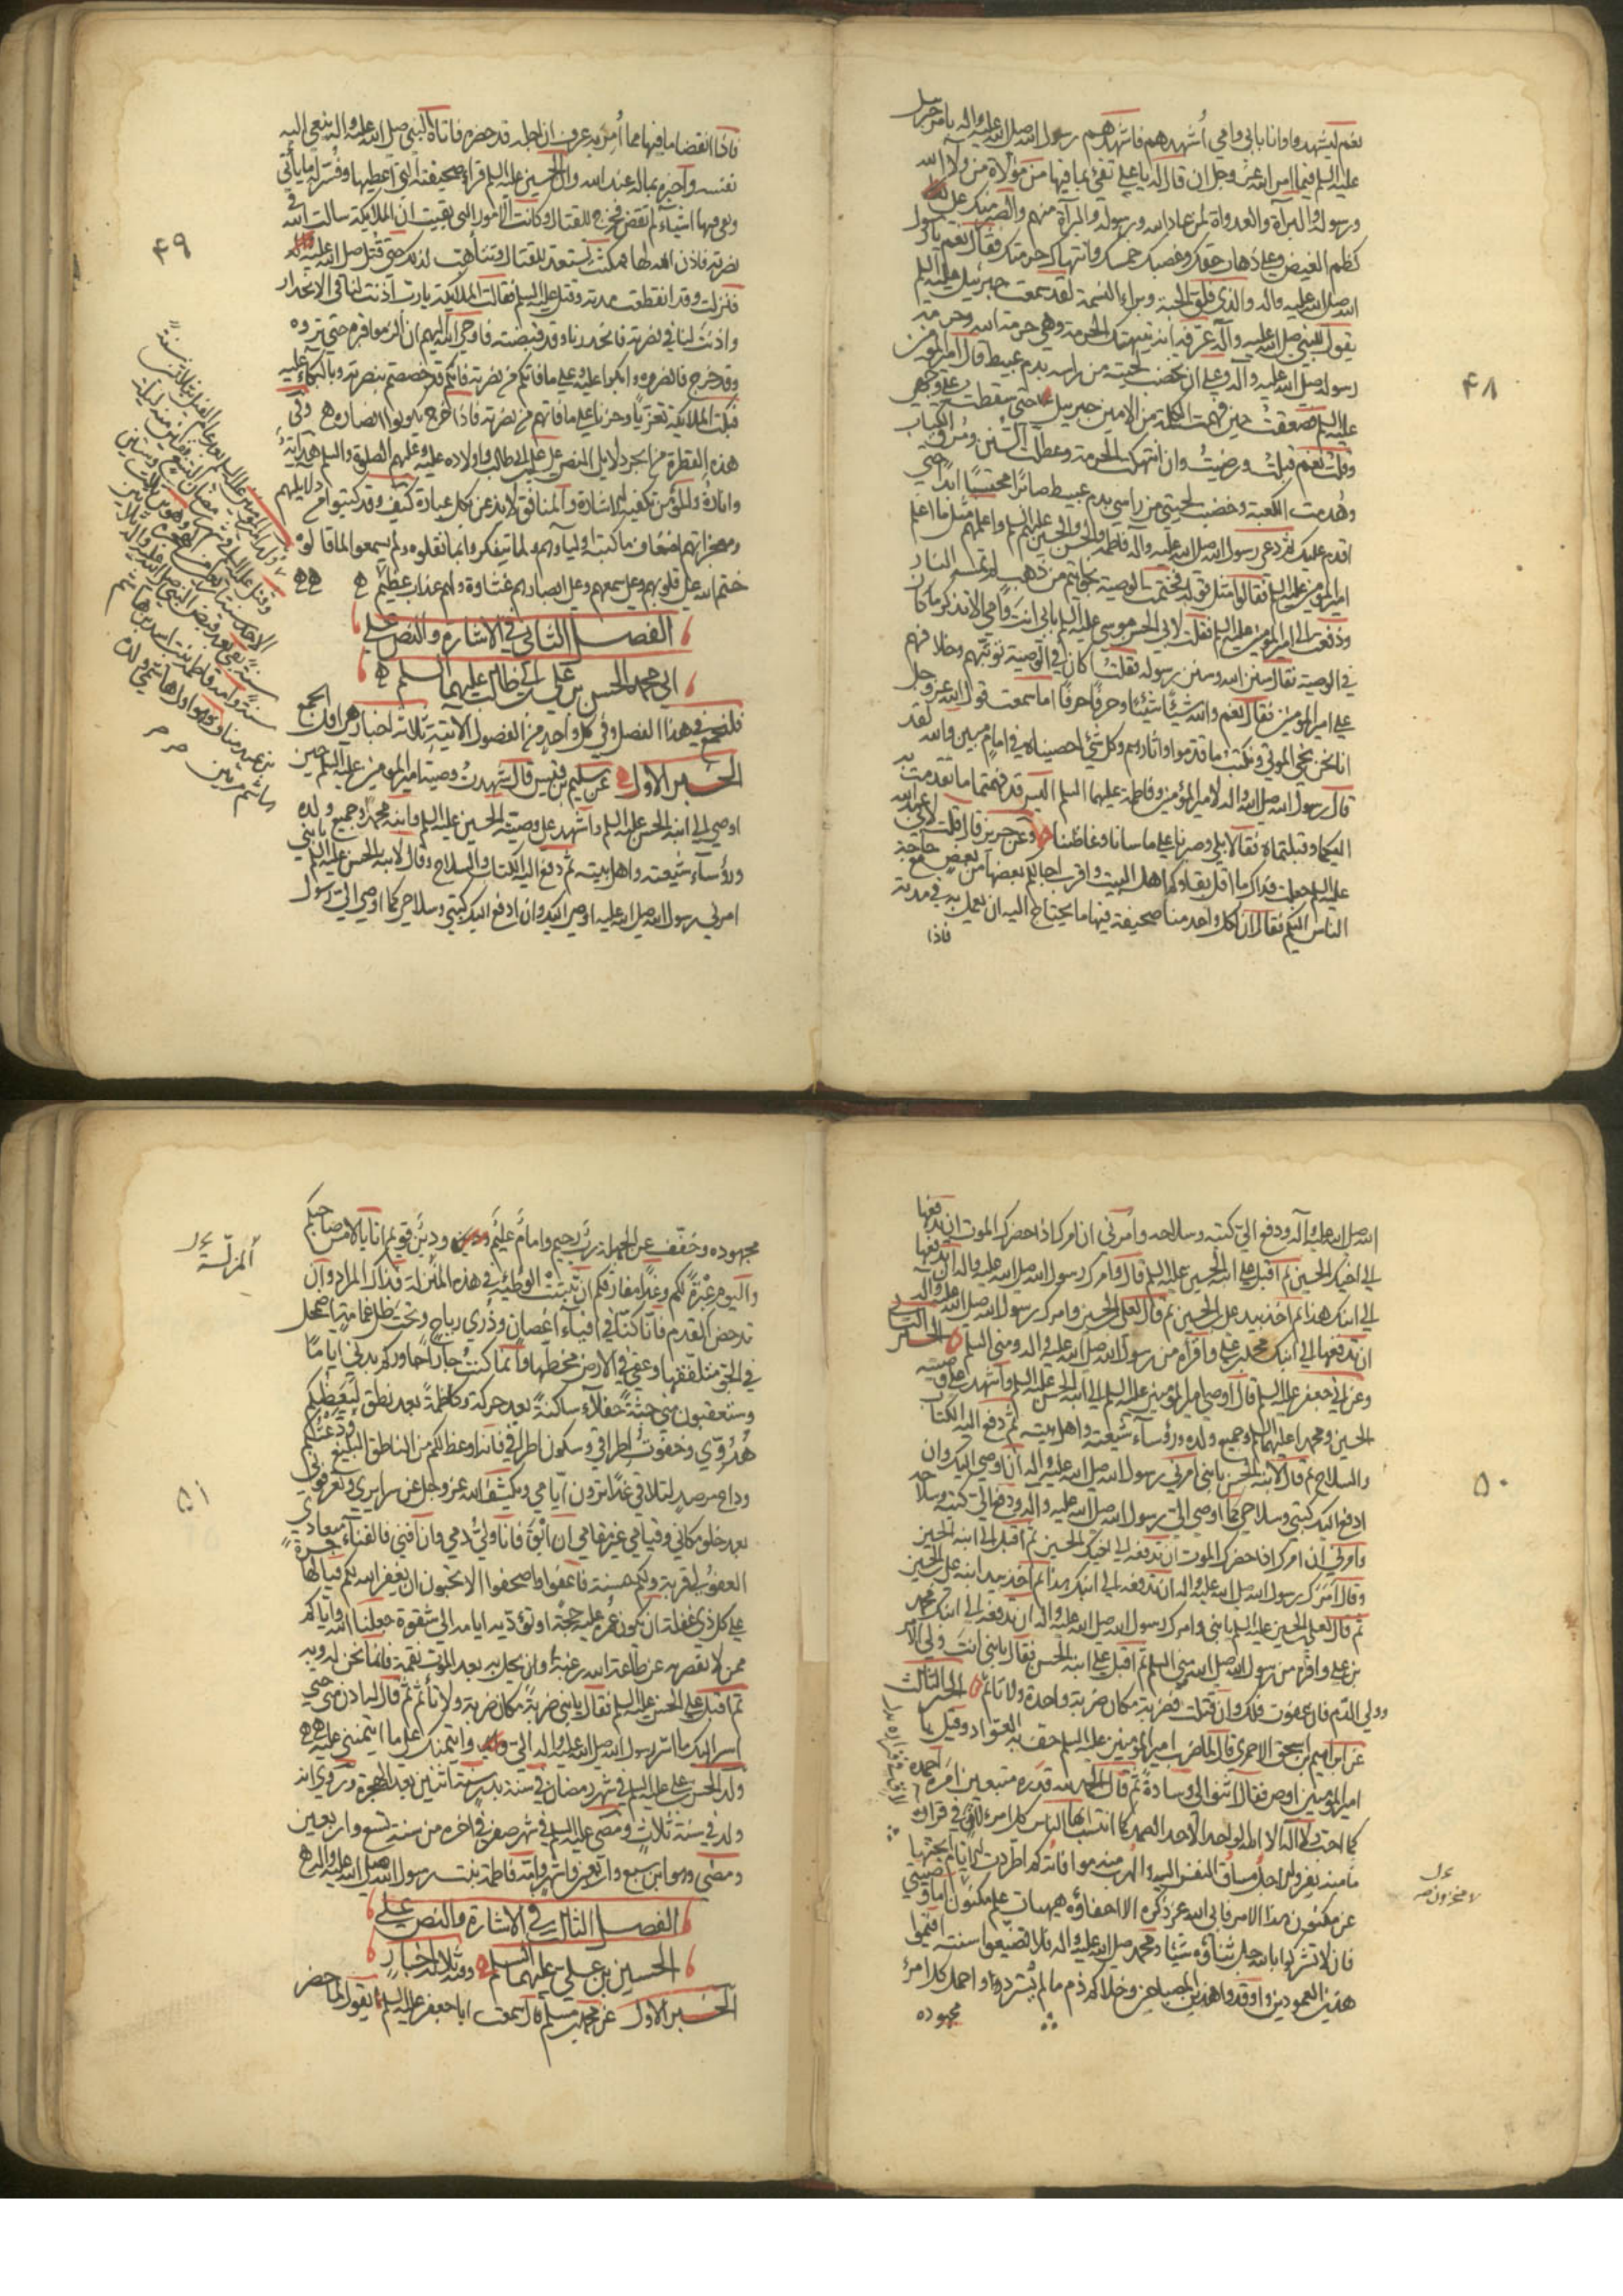 نعم ليشهدوا وانا بابي وامي أشهدهم فاشهدهم رسول الله صل الله عليه واله بامر جبرئيل
عليه السلم فيما امر الله عز وجل ان قال له يا علي تفئ بما فيها من موالاة من والا الله
ورسوله والبراة والعداوة لمن عاد الله ورسوله والبرآة منهم والصبر منك على
كظم الغيض وعلى ذهاب حقك وغصبك خمسك وانتهاك حرمتك فقال نعم يا رسول
الله صل الله عليه واله والذي فلق الحبة وبراء النسمة لقد سمعت جبرئيل عليه السلم
يقول للنبي صل الله عليه وآله عرفه انه ينتهك الحرمة وهي حرمة الله وحرمة
رسول الله صل الله عليه وآله وعلى ان يخضب لحيته من راسه بدم عبيط قال امير المؤمنين
عليه السلم فصعقت حين فهمت الكلمة من الامين جبرئيل حتى سقطت على وجهي
وقلت نعم قبلت ورضيت وان انتهكت الحرمة وعطلت السنن ومزق الكتاب
وهدمت الكعبة وخضبت لحيتي من راسي بدم عبيط صابرا محتسبا ابدا حتى
اقدم عليك ثم دعى رسول الله صل الله عليه وآله فاطمة والحسن والحسين عليهم السلم واعلمهم مثل ما اعلم
امير المؤمنين عليه السلم فقالوا مثل قوله فختمت الوصية بخواتيم من ذهب لم تمسه النار
ودفعت الى امير المؤمنين عليه السلم فقلت لابي الحسن موسى عليه السلم بابي انت وامي الا تذكر ما كان
في الوصية فقال سنن الله وسنن رسوله فقلت اكان في الوصية توثبهم وخلافهم
على امير المؤمنين فقال نعم والله شيئًا شيئًا وحرفًا حرفًا اما سمعت قول الله عز وجل
انا نحن نحي الموتى ونكتب ما قدموا واثارهم وكل شئ احصيناه في امام مبين والله لقد
قال رسول الله صل الله عليه واله لامير المؤمنين وفاطمة عليهما السلم اليس قد فهمتما ما تقدمت به
اليكما وقبلتماه فقالا بلى وصبرنا على ما ساءنا وغاظنا وعن حريز قال قلت لابي عبد الله
عليه السلم جعلت فداك ما اقل بقاؤكم اهل البيت واقرب اجالكم بعضها من بعض مع حاجة
الناس اليكم فقال ان لكل واحد منا صحيفة فيها ما يحتاج اليه ان يعمل به في مدته
فاذا
۴۸
فاذا انقضا ما فيها مما أمر به عرف ان اجله قد حضره فاتاه النبي صل الله عليه واله ينعي اليه
نفسه وآخبره بماله عند الله وان الحسين عليه السلم قراء صحيفته التي اعطيها وفسر له ما ياتي
وبقي فيها اشيآء لم تنقض فخرج للقتال وكانت الامور التي بقيت ان الملايكة سالت الله في
نصرته فاذن الله لها فمكثت تستعد للقتال وتتاهب لذلك حتى قتل صل الله عليه
فنزلت وقد انقطعت مدته وقتل عليه السلم فقالت الملايكة يا رب اذنت لنا في الانحدار
واذنت لنا في نصرته فانحدرنا وقد قبضته فاوحى الله اليهم ان الزموا قبره حتى تروه
وقد خرج فانصروه وابكوا عليه وعلى ما فاتكم من نصرته فانكم قد خصصتم بنصرته وبالبكاء عليه
فبكت الملايكة تعزيًا وحزنًا على ما فاتهم من نصرته فاذا خرج يكونوا انصاره ه وفي
هذه القطرة من ابحر دلايل النص على علي بن ابي طالب واولاده عليه وعليهم الصلوة والسلم هداية
وافادة والمؤمن تكفيه الاشارة والمنافق لا يدعن بكل عبادة كيف وقد كتبوا من دلايلهم
ومعجزاتهم اضعاف ما كتبت اوليآوهم ولما يتفكروا بما نقلوه ولم يسمعوا لما قالوه
ختم الله على قلوبهم وعلى سمعهم وعلى ابصارهم غشاوة ولهم عذاب عظيم ه ه ه
الفصل الثاني في الاشارة والنص على
ابي محمد الحسن بن علي بن ابي طالب عليهما السلم ه
فلنجمع في هذا الفصل وفي كل واحد من الفصول الاتية ثلاثة اخبار هي اقل الجمع
الخبر الاول عن سليم بن قيس قال شهدت وصية امير المؤمنين عليه السلم حين
اوصى الى ابنه الحسن عليه السلم واشهد على وصيته الحسين عليه السلم وابنه محمدا وجميع ولده
ورؤسآء شيعته واهل بيته ثم دفع اليه الكتاب والسلاح وقال لابنه الحسن عليه السلم يا بني
امرني رسول الله صل الله عليه اوصي اليك وان ادفع اليك كتبي وسلاحي كما اوصى الي رسول
۴۹
الله صل الله عليه وآله ودفع الي كتبه وسلاحه وامرني ان امرك اذا حضرك الموت ان تدفعها
الى اخيك الحسين ثم اقبل على ابنه الحسين عليه السلم قال وامرك رسول الله صل الله عليه واله ان تدفعها
الى ابنك هذا ثم اخذ بيد علي بن الحسين ثم قال لعلي بن الحسين وامرك رسول الله صل الله عليه واله
ان تدفعها الى ابنك محمد بن علي واقرأه من رسول الله صل الله عليه واله ومني السلم الخبر الثاني
وعن ابي جعفر عليه السلم قال اوصى امير المؤمنين عليه السلم الى ابنه الحسن عليه السلم واشهد على وصيته
الحسين ومحمدا عليهما السلم وجميع ولده ورؤسآء شيعته واهل بيته ثم دفع اليه الكتاب
والسلاح ثم قال لابنه الحسن يا بني امرني رسول الله صل الله عليه وآله ان اوصي اليك وان
ادفع اليك كتبي وسلاحي كما اوصى الي رسول الله صل الله عليه واله ودفع الي كتبه وسلاحه
وامرني ان امرك اذا حضرك الموت ان تدفعه الى اخيك الحسين ثم اقبل الى ابنه الحسين
وقال امرك رسول الله صل الله عليه واله ان تدفعه الى ابنك هذا ثم اخذ بيد ابنه علي بن الحسين
ثم قال لعلي بن الحسين عليه السلم يا بني وامرك رسول الله صل الله عليه واله ان تدفعه الى ابنك محمد
بن علي واقرأه من رسول الله صل الله ومني السلم ثم اقبل على ابنه الحسن فقال يا بني انت ولي الامر
وولي الدم فان عفوت فلك وان قتلت فضربة مكان ضربة واحدة ولا تأثم الخبر الثالث
عن ابراهيم بن اسحق الاحمري قال لما ضرب امير المؤمنين عليه السلم حف به العواد وقيل يا
امير المؤمنين اوص فقال اثنوا لي وسادة ثم قال الحمد لله قدره متبعين امره احمده
كما احب ولا اله الا الله الواحد الاحد الصمد كما انتسب ايها الناس كل امرء لاق في فراره
ما منه يفر والاجل مساق النفس اليه والهرب منه موافاته كم اطردت الايام ابحثها
عن مكنون هذا الامر فابى الله عز ذكره الا اخفاؤه هيهات علم مكنون اما وصيتي
فان لا تشركوا بالله جل ثناؤه شيئا ومحمد صل الله عليه واله فلا تضيعوا سنته اقيموا
هذين العمودين واوقدوا هذين المصباحين وخلاكم ذم ما لم تشردوا واحمل كل امرئ
مجهوده
۵۰
مجهوده وخفف عن الجهلة رب رحيم وامام عليم ودين قويم انا بالامس صاحبكم
واليوم عبرة لكم وغدا مفارقكم ان تثبت الوطئة في هذه المنزلة فذاك المراد وان
تدحض القدم فانا كنا في افيآء اغصان وذري رياح وتحت ظل غمامة اضمحل
في الجو متلفقها وعفى في الارض مخطها وانما كنت جارا جاوركم بدني اياما
وستعقبون مني جثة خلآء ساكنة بعد حركة وكاظمة بعد نطق ليعظكم
هدوي وخفوت اطراقي وسكون اطرافي فانه اوعظ لكم من الناطق البليغ ودعتكم
وداع مرصد للتلاقي غدا ترون ايامي ويكشف الله عز وجل عن سرايري وتعرفوني
بعد خلو مكاني وقيامي غير مقامي ان ابق فانا ولي دمي وان افنى فالفنآء ميعادي
العفو لي قربة ولكم حسنة فاعفوا واصفحوا الا تحبون ان يغفر الله لكم فيا لها حسرة
على كل ذي غفلة ان يكون عمره عليه حجة او تؤديه ايامه الى شقوة جعلنا الله واياكم
ممن لا يقصر به عن طاعة الله رغبة وان يحل به بعد الموت نقمة فانما نحن له وبه
ثم اقبل على الحسن عليه السلم فقال يا بني ضربة مكان ضربة ولا تأثم ثم قال ادن مني حتى
اسر اليك ما اسر رسول الله صل الله عليه واله الي وايتمنك على ما ايتمنني عليه ه ه
ولد الحسن بن علي عليه السلم في شهر رمضان في سنة بدر سنة اثنين بعد الهجرة وروي انه
ولد في سنة ثلاث ومضى عليه السلم في شهر صفر في اخره من سنة تسع واربعين
ومضى وهو ابن سبع واربعين وامه فاطمة بنت رسول الله صل الله عليه واله ه
الفصل الثالث في الاشارة والنص على
الحسين بن علي عليهما السلم وفيه ثلاثة اخبار
الخبر الاول عن محمد بن مسلم قال سمعت ابا جعفر عليه السلم يقول لما حضر
۵۱